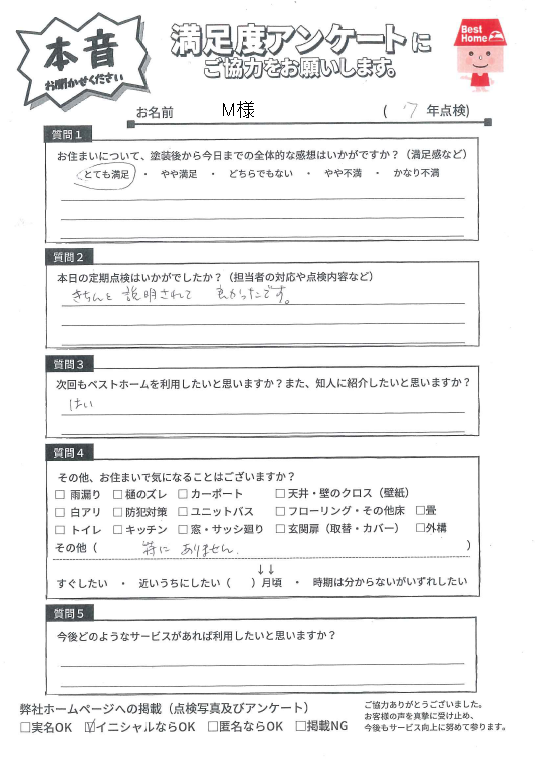 本音
お聞かせください
満足度アンケートに
ご協力をお願いします。
Best Home
お名前 M様 ( 7 年点検)
質問1
お住まいについて、塗装後から今日までの全体的な感想はいかがですか?（満足感など）
とても満足 ・ やや満足 ・ どちらでもない ・ やや不満 ・ かなり不満
質問2
本日の定期点検はいかがでしたか?（担当者の対応や点検内容など）
きちんと説明されて 良かったです。
質問3
次回もベストホームを利用したいと思いますか?また、知人に紹介したいと思いますか?
はい
質問4
その他、お住まいで気になることはございますか?
□ 雨漏り □ 樋のズレ □ カーポート □ 天井・壁のクロス（壁紙）
□ 白アリ □ 防犯対策 □ ユニットバス □ フローリング・その他床 □畳
□ トイレ □ キッチン □ 窓・サッシ廻り □ 玄関扉（取替・カバー） □外構
その他（ 特に ありません. ）
↓↓
すぐしたい ・ 近いうちにしたい（ ）月頃 ・ 時期は分からないがいずれしたい
質問5
今後どのようなサービスがあれば利用したいと思いますか?
弊社ホームページへの掲載（点検写真及びアンケート）
□実名OK ☑イニシャルならOK □匿名ならOK □掲載NG
ご協力ありがとうございました。
お客様の声を真摯に受け止め、
今後もサービス向上に努めて参ります。